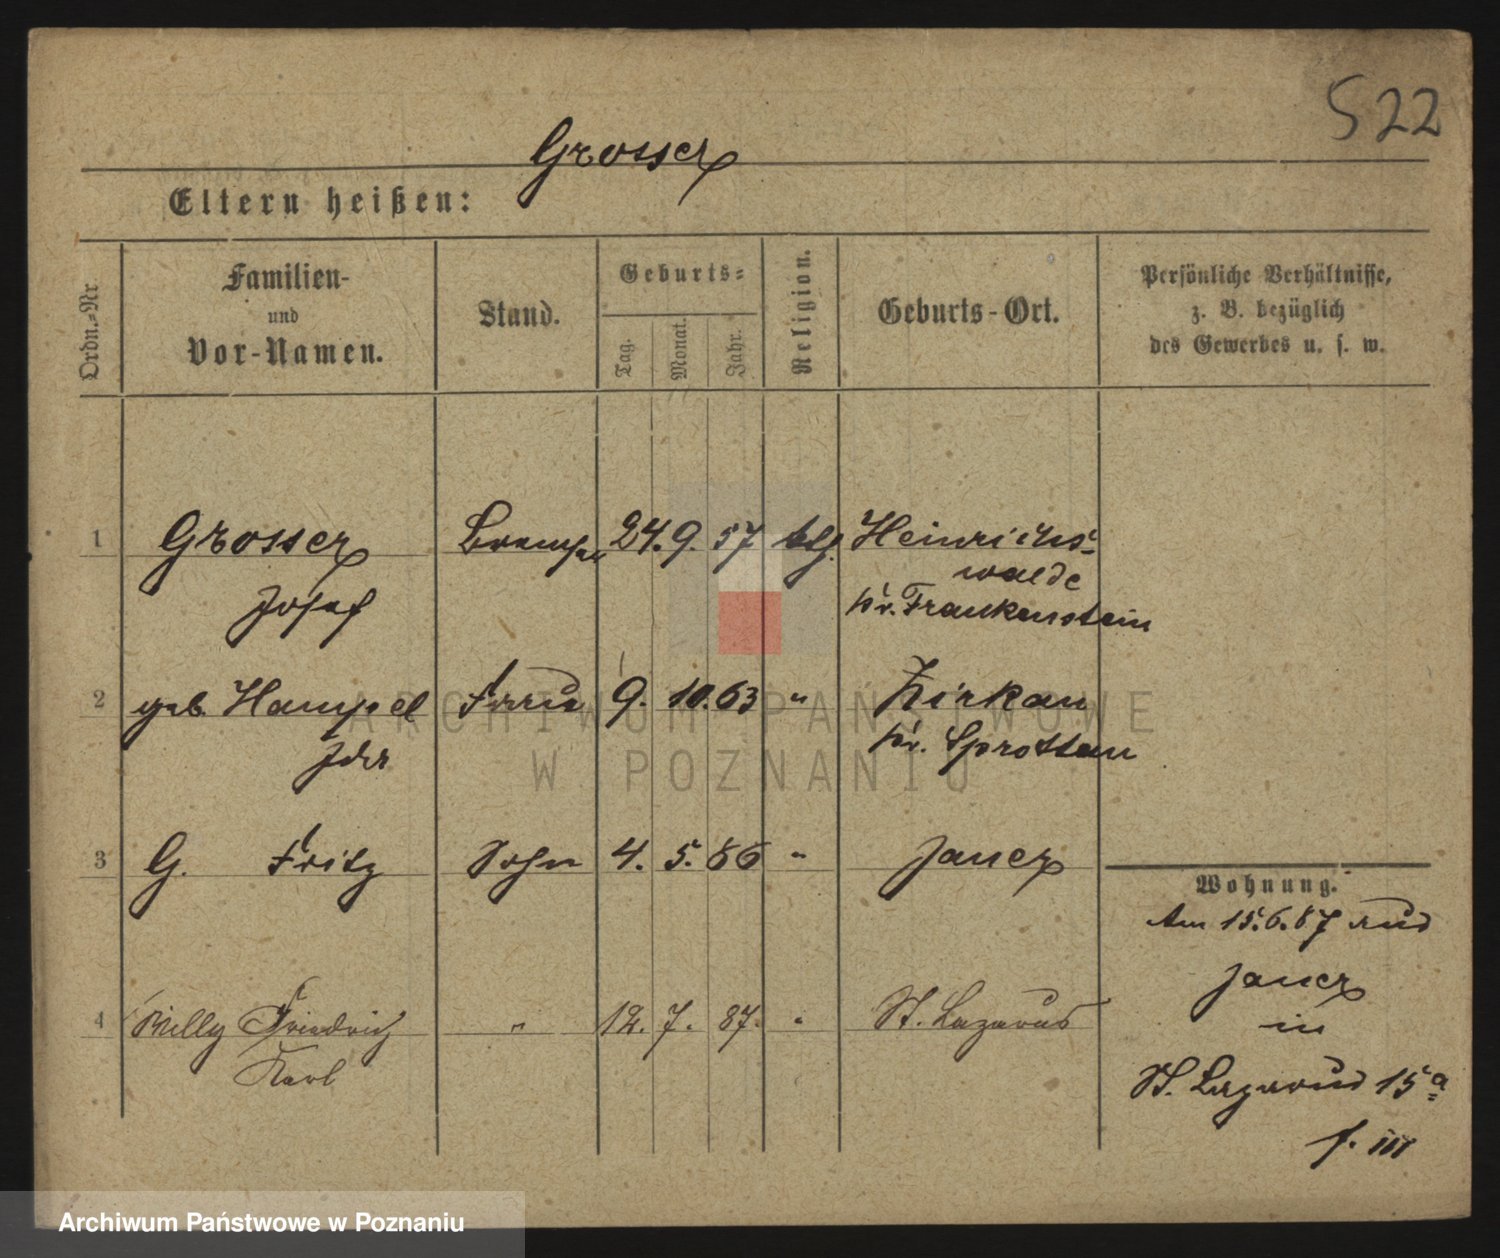 522
Grosser
Eltern heißen:
Ordn.-Nr.
Familien-
und
Vor-Namen.
Stand.
Geburts-
Tag.
Monat.
Jahr.
Religion.
Geburts-Ort.
Persönliche Verhältnisse,
z. B. bezüglich
des Gewerbes u. s. w.
1 Grosser 24. 9. 57 Heinrichs-
walde
Josef pr. Frankenstein
2 geb. Hampel Frau 9. 10. 63 " Zirkau
Ida pr. Sprottau
3 G. Fritz Sohn 4. 5. 86 " Jauer
Wohnung.
Am 15.6.87 aus
Jauer
in
St. Lazarus 15a
4 Willy Friedrich " 12. 7. 87. " St. Lazarus
Karl
ARCHIWUM PAŃSTWOWE
W POZNANIU
Archiwum Państwowe w Poznaniu